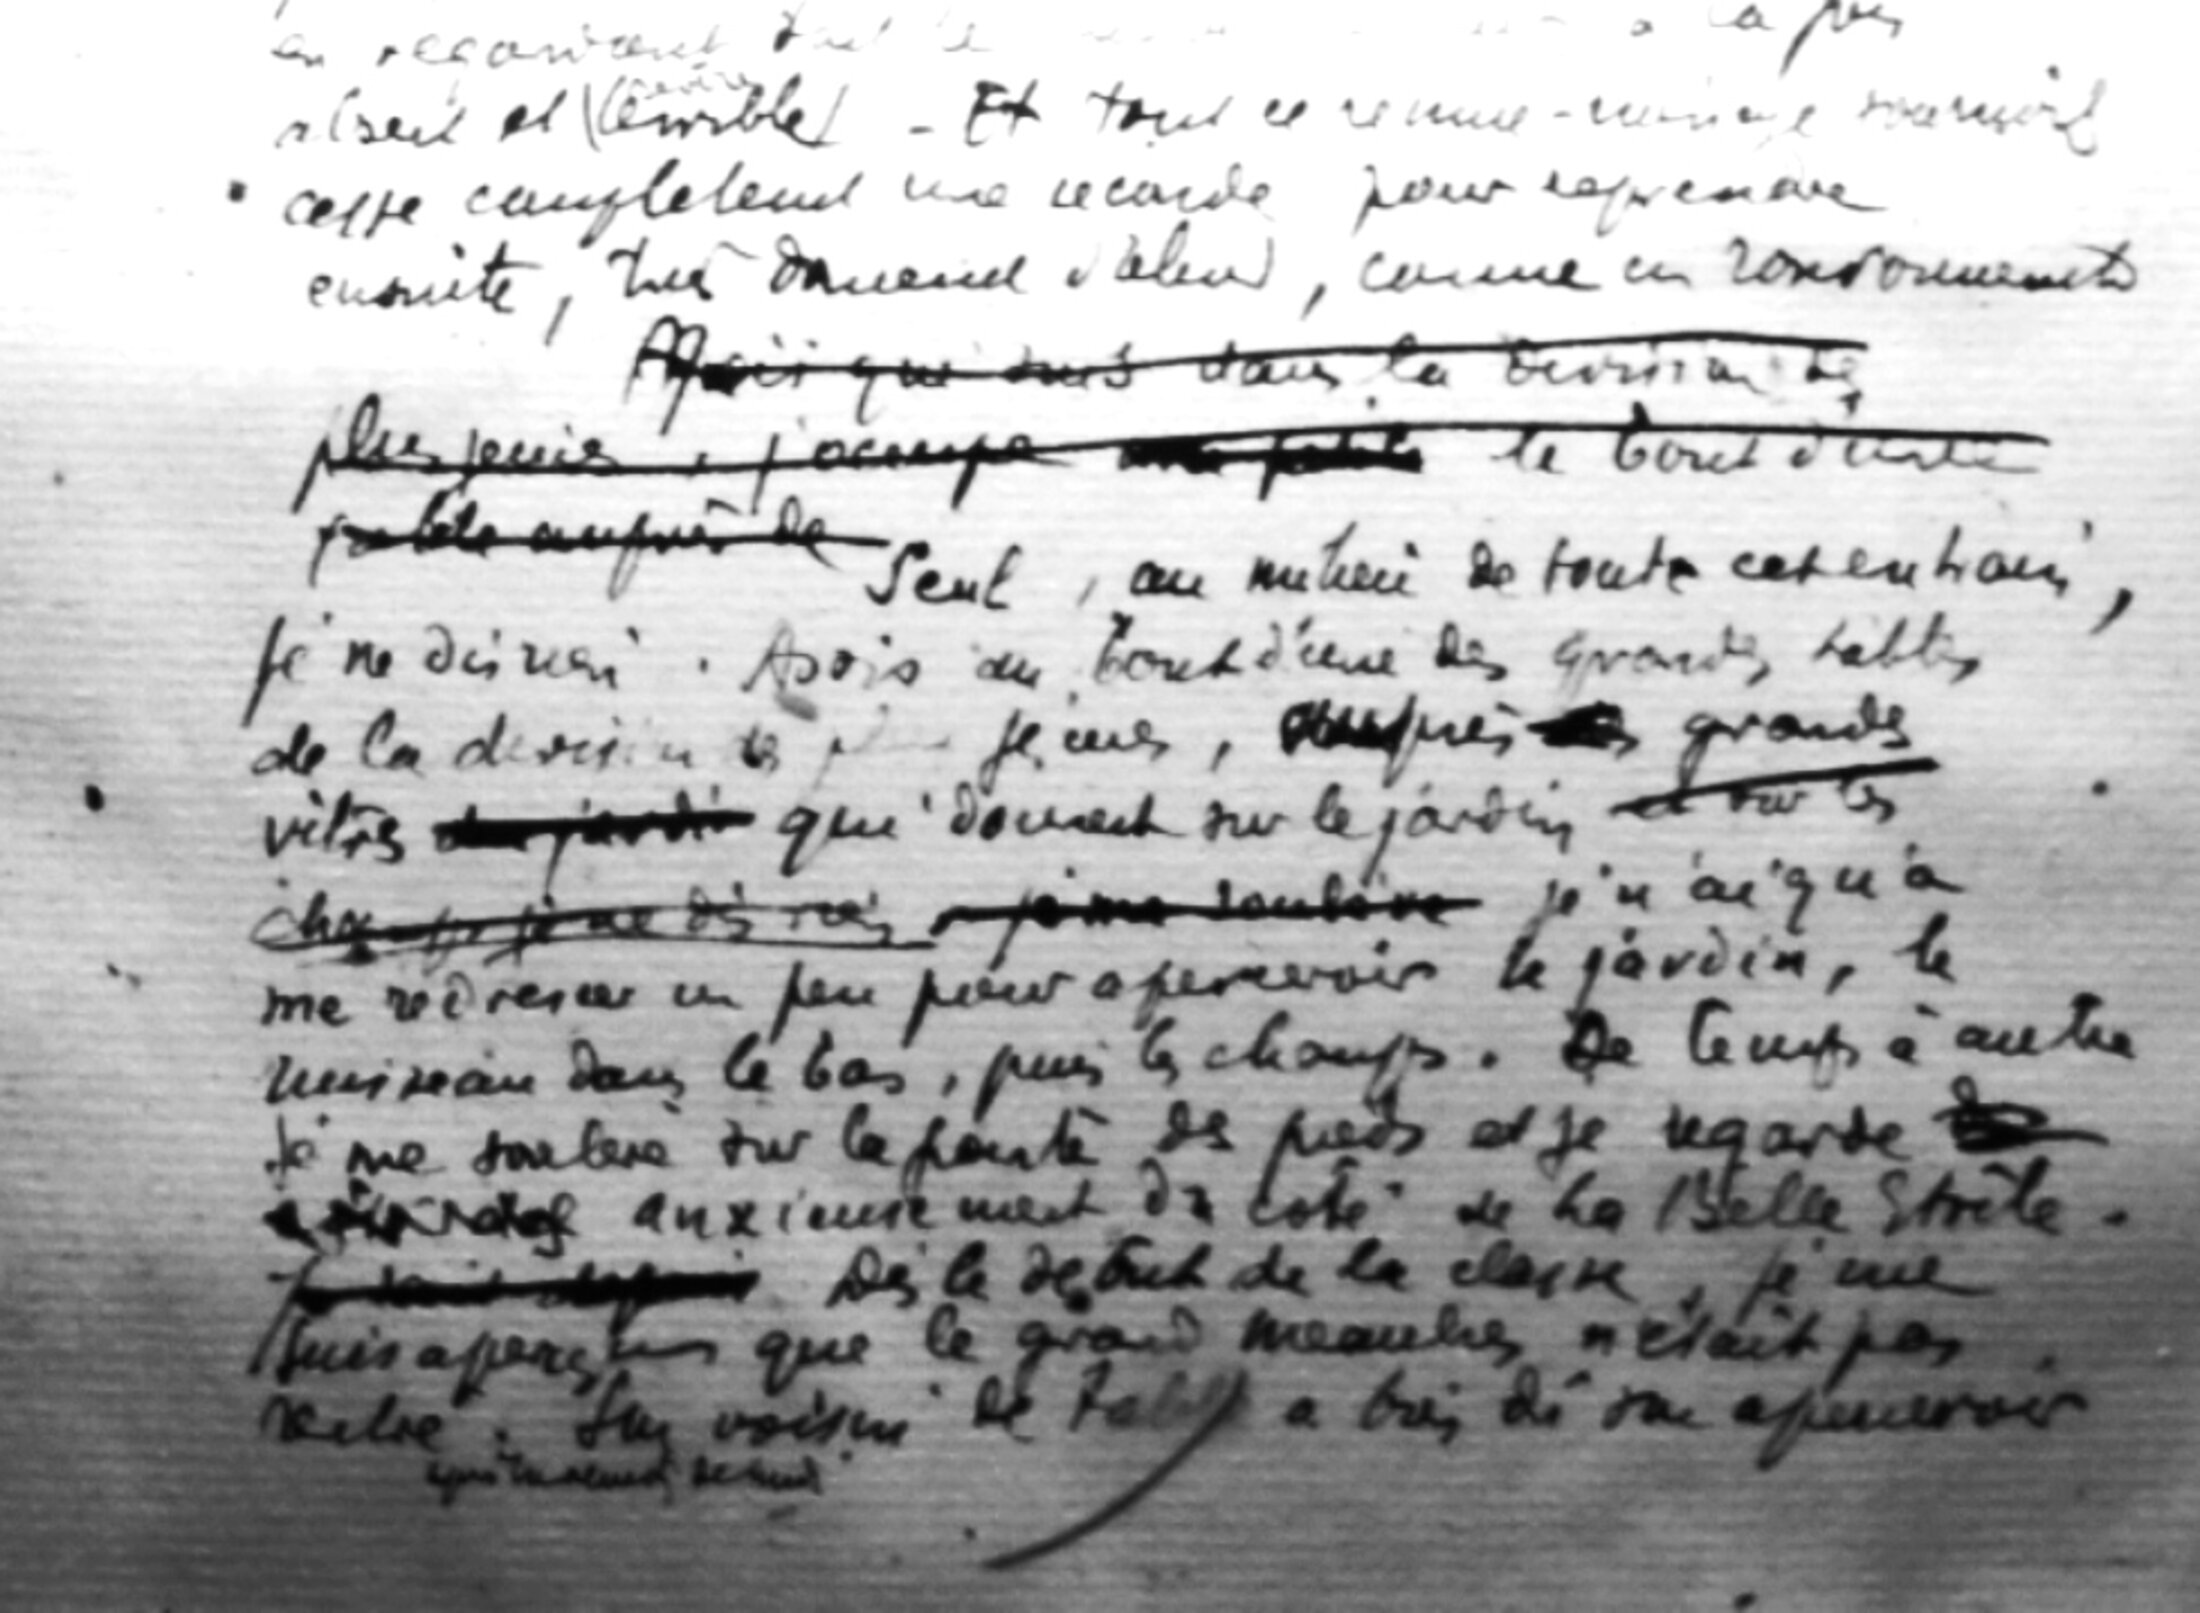 en regardant tout le à la fois
absent et terrible - Et tout ce remue-ménage sournois
cesse complètement une seconde pour reprendre
ensuite, très doucement d'abord, comme un ronronnement
Moi qui suis dans la division des
plus jeunes, j'occupe une petite le bout d'une
table auprès de
Seul, au milieu de toute cet entrain,
je ne dis rien. Assis au bout d'une des grandes tables
de la division des plus jeunes, près des grandes
vitres du jardin qui donnent sur le jardin et sur les
champs je ne dis rien je me soulève je n'ai qu'à
me redresser un peu pour apercevoir le jardin, le
ruisseau dans le bas, puis les champs. De temps à autre
je me soulève sur la pointe des pieds et je regarde
anxieusement du côté de La Belle Etoile.
Dès le début de la classe, je me
suis aperçu que le grand Meaulnes n'était pas
rentré. Son voisin de table a bien dû s'en apercevoir